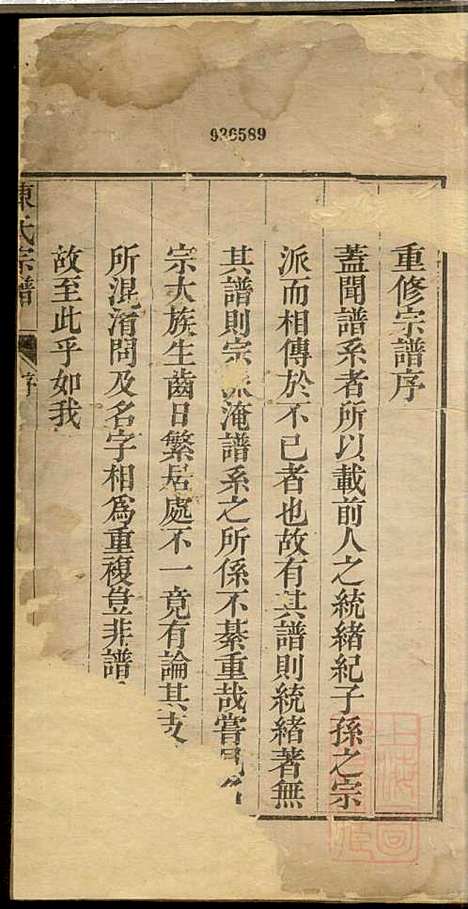 936589
重修宗譜序
蓋聞譜系者所以載前人之統緒紀子孫之宗
派而相傳於不已者也故有其譜則統緒著無
其譜則宗派淹譜系之所係不綦重哉嘗見
宗大族生齒日繁居處不一竟有論其支
所混淆問及名字相爲重複豈非譜
故至此乎如我
陳氏宗譜
序